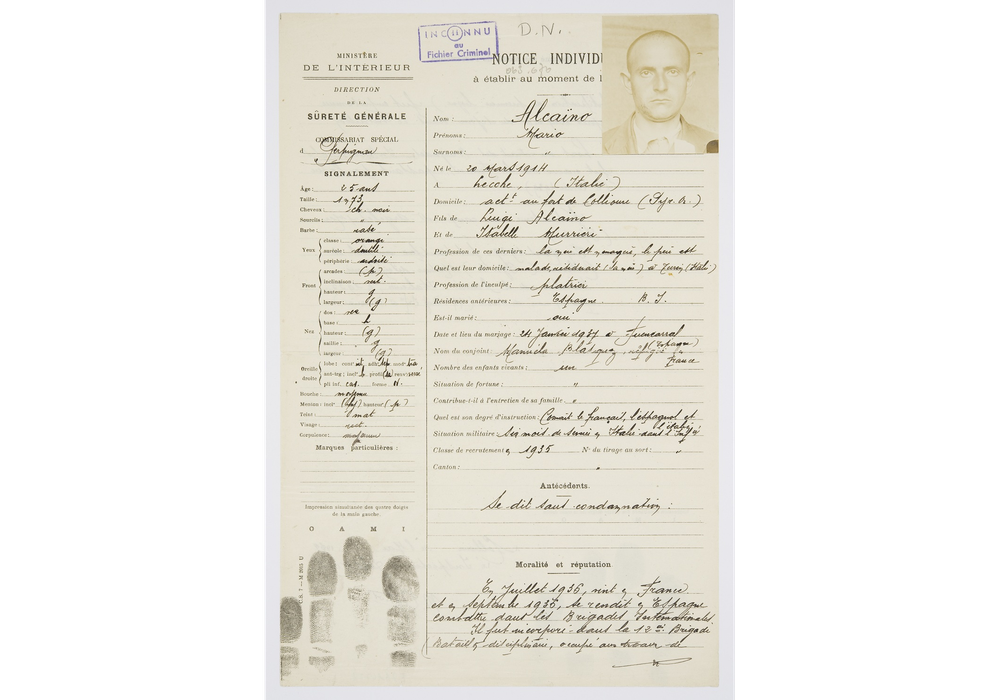 MINISTÈRE
DE L'INTERIEUR
DIRECTION
DE LA
SÛRETÉ GÉNÉRALE
COMMISSARIAT SPÉCIAL
d Perpignan
SIGNALEMENT
Age: 25 ans
Taille: 1,73
Cheveux: ch. noir
Sourcils: "
Barbe: rasé
Yeux
classe: orangé
auréole:
périphérie:
Front
arcades: (p)
inclinaison:
hauteur: g
largeur: (g)
Nez
dos: rec
base: h
hauteur: (g)
saillie: g
largeur: (g)
Oreille droite
lobe: cont
ant-trg: incl profil renv
pli inf. forme
Bouche: moyenne
Menton: incl hauteur (p)
Teint: mat
Visage:
Corpulence: moyenne
Marques particulières:
Impression simultanée des quatre doigts
de la main gauche.
O A M I
INCONNU
au
Fichier Criminel
D.N.
NOTICE INDIVIDU
à établir au moment de l
Nom: Alcaïno
Prénoms: Mario
Surnoms: "
Né le 20 Mars 1914
A Lecche, (Italie)
Domicile: actt au fort de Collioure (Pyr. Or.)
Fils de Luigi Alcaïno
Et de Isabelle Murrieri
Profession de ces derniers: la mère est ménagère, le père est
Quel est leur domicile: malade, (la mère) à Turin (Italie)
Profession de l'inculpé: platrier
Résidences antérieures: Espagne. B. I.
Est-il marié: oui
Date et lieu du mariage: 24 Janvier 1937 à Fuencarral (Espagne)
Nom du conjoint: Manuela Blasquez, réfugiée en France
Nombre des enfants vivants: un
Situation de fortune: "
Contribue-t-il à l'entretien de sa famille "
Quel est son degré d'instruction: Connait le français, l'espagnol et l'italien
Situation militaire: Six mois de service en Italie dans l'Infie
Classe de recrutement: 1935 N° du tirage au sort: "
Canton: "
Antécédents.
Se dit sans condamnation:
Moralité et réputation
En Juillet 1936, vint en France
et en septembre 1936, se rendit en Espagne
combattre dans les Brigades Internationales.
Il fut incorporé dans la 12e Brigade
Bataillon disciplinaire, occupé aux travaux de